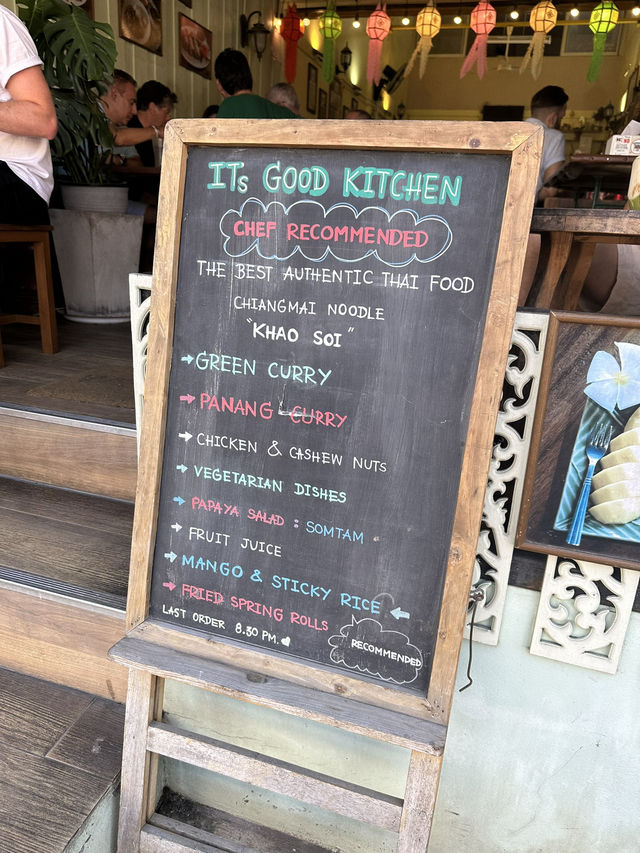 ITs GOOD KITCHEN
CHEF RECOMMENDED
THE BEST AUTHENTIC THAI FOOD
CHIANGMAI NOODLE
"KHAO SOI"
→GREEN CURRY
→PANANG CURRY
→CHICKEN & CASHEW NUTS
→VEGETARIAN DISHES
→PAPAYA SALAD : SOMTAM
→FRUIT JUICE
→MANGO & STICKY RICE ←
→FRIED SPRING ROLLS
LAST ORDER 8.30 PM. ♥
RECOMMENDED